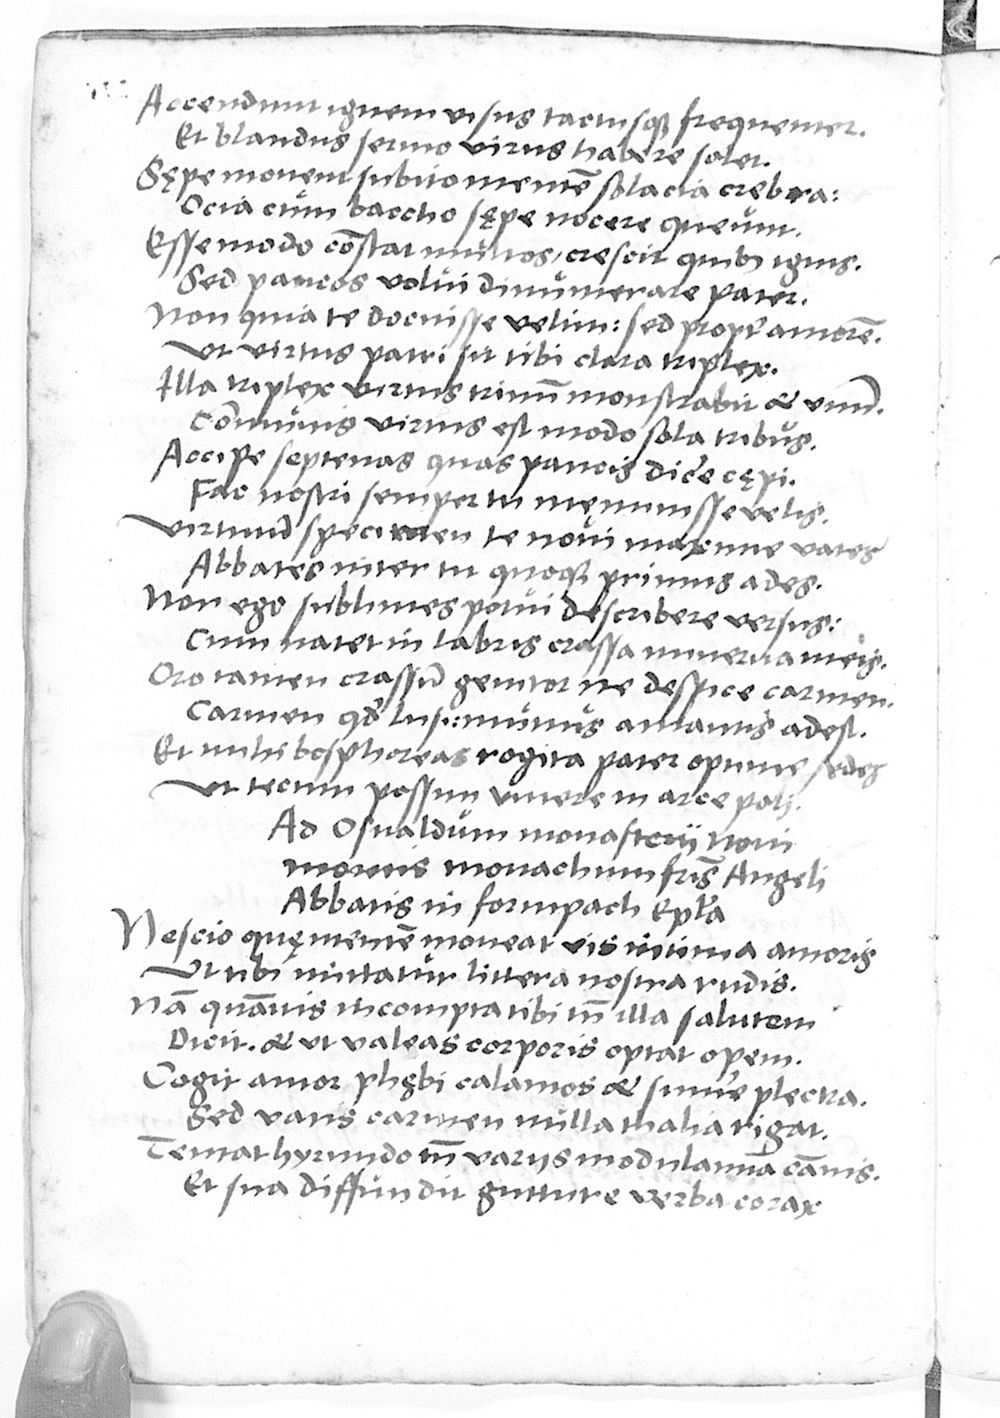 Accendunt ignem visus tactusq₃ frequenter.
Et blandus sermo virus habere solet.
Sępe movent subito mentē solacia crebra:
Ocia cum baccho sępe nocere queunt.
Esse modo cōstat multos, crescit quib₃ ignis.
Sed paucos volui dinumerare pater.
Non quia te docuisse velim: sed propt̄ amorē.
Ut virtus patri sit tibi clara triplex.
Illa triplex virtus trinū monstrabit & unū.
Cōmunis virtus est modo sola tribus.
Accipe septenas quas paucis dic̄e cępi.
Fac nostri semper tu męminisse velis.
Virtutū specimen te novi maxime vates
Abbates inter tu quoq₃ primus ades.
Non ego sublimes potui describere versus:
Cum natet in labris crassa minerva meis.
Oro tamen crassū genitor ne despice carmen.
Carmen qd̄ lusi: munus amantis adest.
Et mihi bosphoreas rogita pater optime sedes
Ut tecum possim vivere in arce poli.
Ad Osvaldum monasterij Novi
montis monachum fr̄is Angeli
Abbatis in formpach Ep̄la
Nescio quę mentē moveat vis intima amoris
Ut tibi mittatur littera nostra rudis.
Nā quāvis incompta tibi tn̄ illa salutem
Dicit. & ut valeas corporis optat opem.
Cogit amor phębi calamos & sum̄e plectra.
Sed vatis carmen nulla thalia rigat.
Temtat hyrundo tn̄ varijs modulamīa cānis.
Et sua diffundit gutture verba corax